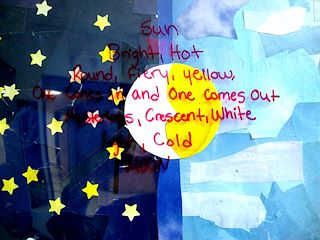 Sun
Bright, Hot
Round, Fiery, yellow,
One comes In and One comes Out
Crescent, White
Cold
Moon